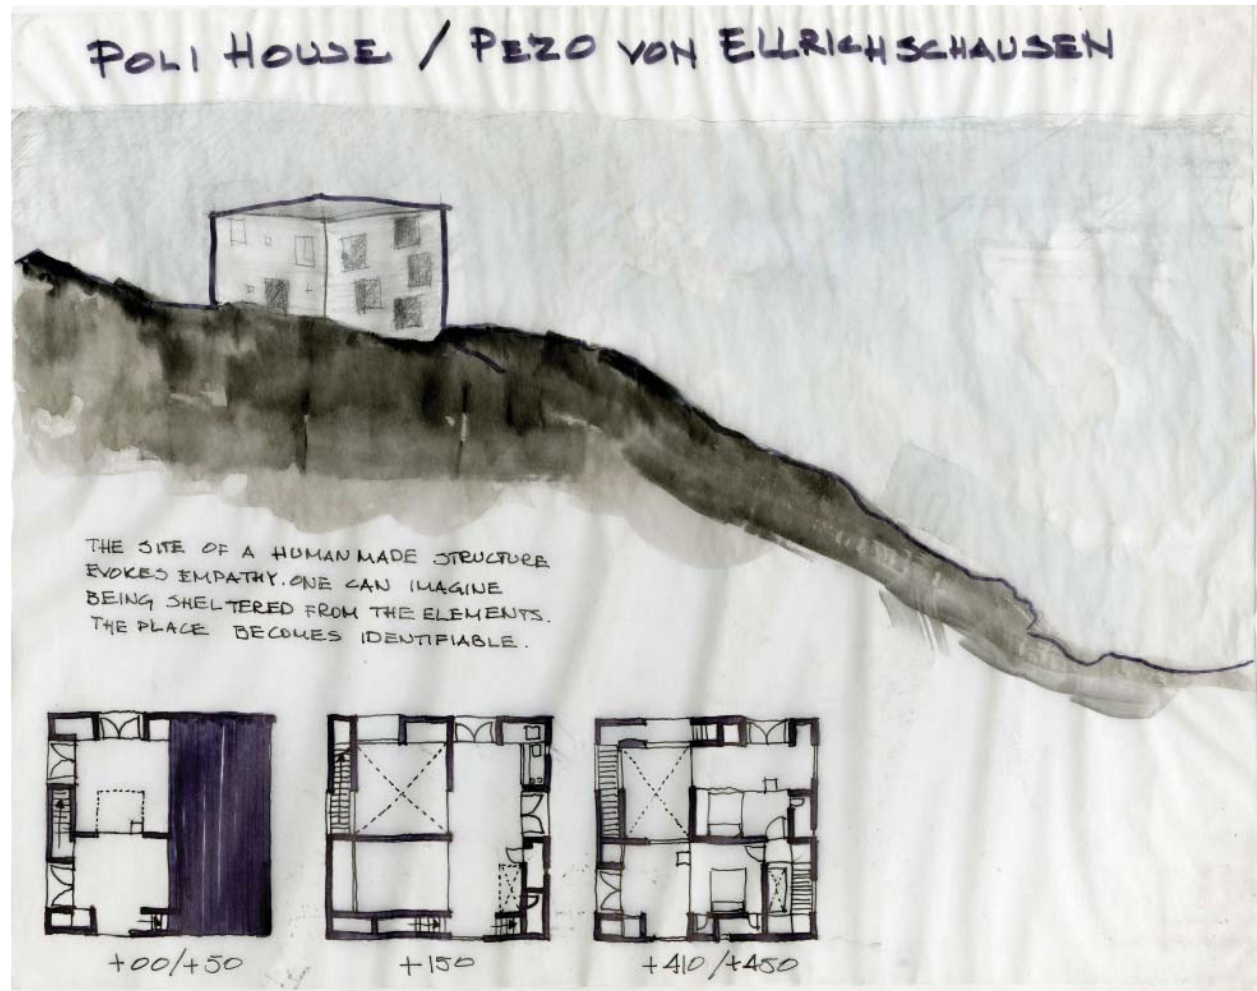 POLI HOUSE / PEZO VON ELLRICHSCHAUSEN
THE SITE OF A HUMAN MADE STRUCTURE
EVOKES EMPATHY. ONE CAN IMAGINE
BEING SHELTERED FROM THE ELEMENTS.
THE PLACE BECOMES IDENTIFIABLE.
+00/+50
+150
+410/+450